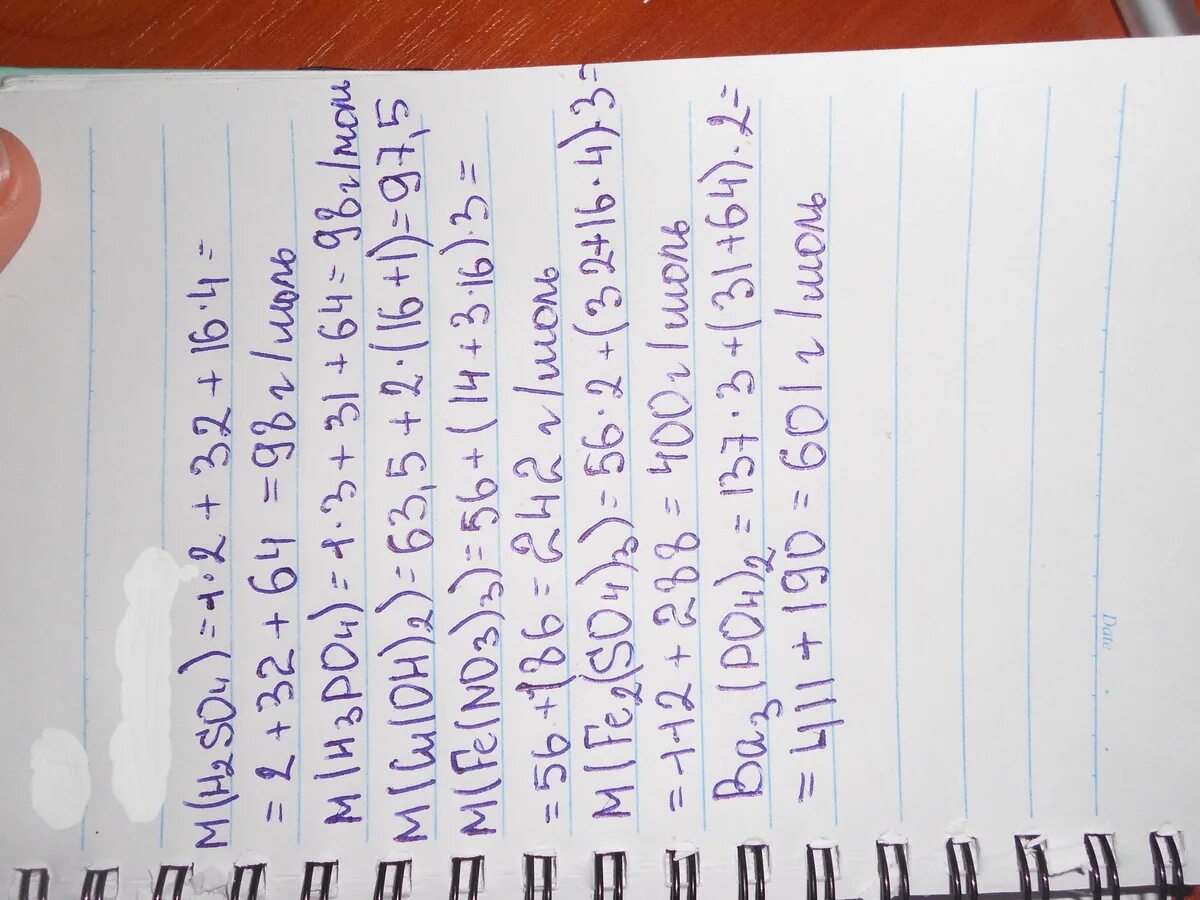 M(H2SO4)=1·2+32+16·4=
=2+32+64=98 г/моль
M(H3PO4)=1·3+31+64=98 г/моль
M(Cu(OH)2)=63,5+2·(16+1)=97,5
M(Fe(NO3)3)=56+(14+3·16)·3=
=56+186=242 г/моль
M(Fe2(SO4)3)=56·2+(32+16·4)·3=
=112+288=400 г/моль
Ba3(PO4)2=137·3+(31+64)·2=
=411+190=601 г/моль
Date